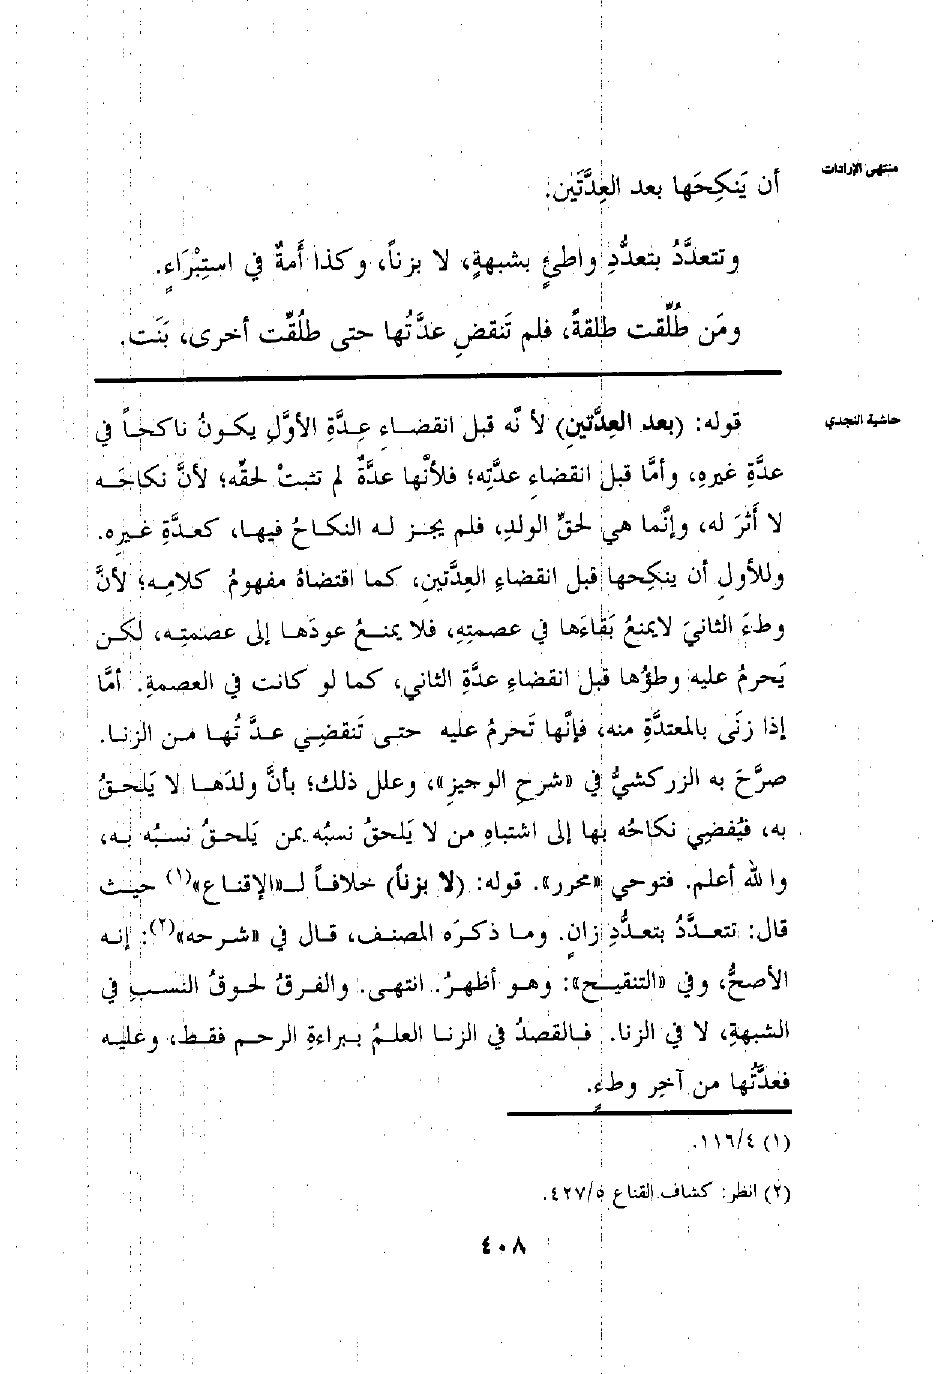 منتهى الإرادات
أن يَنكِحَها بعد العِدَّتَين.
وتتعدَّدُ بتعدُّدِ واطئٍ بشبهةٍ، لا بزناً، وكذا أَمةٌ في استِبْرَاءٍ.
ومَن طُلِّقت طلقةً، فلم تَنقضِ عدَّتُها حتى طلُقِّت أخرى، بَنَت.
حاشية النجدي
قوله: (بعد العِدَّتين) لأنَّه قبل انقضاءِ عِدَّةِ الأوَّلِ يكونُ ناكحاً في
عدَّةِ غيرِه، وأمَّا قبل انقضاءِ عدَّتِه؛ فلأنَّها عدَّةٌ لم تثبتْ لحقِّه؛ لأنَّ نكاحَه
لا أثَرَ له، وإنَّما هي لحقِّ الولدِ، فلم يجز له النكاحُ فيها، كعدَّةِ غيرِه.
وللأولِ أن ينكِحها قبل انقضاءِ العِدَّتين، كما اقتضاهُ مفهومُ كلامِه؛ لأنَّ
وطءَ الثاني لايمنعُ بَقاءَها في عصمتِهِ، فلا يمنعُ عودَها إلى عصمتِه، لكن
يَحرمُ عليه وطؤُها قبل انقضاءِ عدَّةِ الثاني، كما لو كانت في العصمةِ. أمَّا
إذا زنَى بالمعتدَّةِ منه، فإنَّها تَحرمُ عليه حتى تَنقضِي عدَّتُها من الزنا.
صرَّحَ به الزركشيُّ في «شرحِ الوجيزِ»، وعلل ذلك؛ بأنَّ ولدَها لا يَلحقُ
به، فيُفضِي نكاحُه بها إلى اشتباهِ من لا يَلحقُ نسبُه بمن يَلحقُ نسبُه به،
والله أعلم. فتوحي «محرر». قوله: (لا بزناً) خلافاً لـ«الإقناع»(١) حيث
قال: تتعدَّدُ بتعدُّدِ زانٍ. وما ذكرَه المصنف، قال في «شرحه»(٢): إنه
الأصحُّ، وفي «التنقيح»: وهو أظهرُ. انتهى. والفرقُ لحوقُ النسبِ في
الشبهةِ، لا في الزنا. فالقصدُ في الزنا العلمُ ببراءةِ الرحمِ فقط، وعليه
فعدَّتُها من آخِرِ وطءٍ.
(١) ١١٦/٤.
(٢) انظر: كشاف القناع ٤٢٧/٥.
٤٠٨